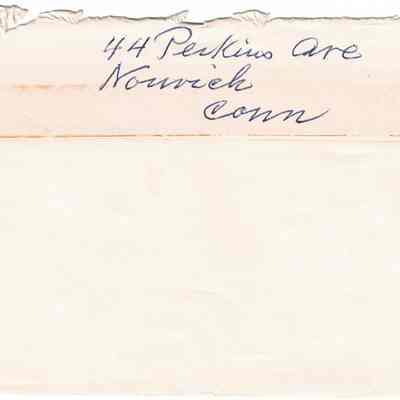 44 Perkins Ave
Norwich
Conn